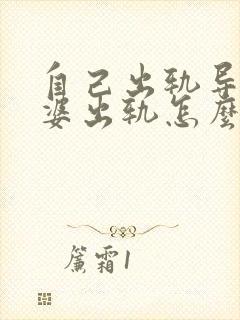 自己出轨导
婆出轨怎麼
簾霜1